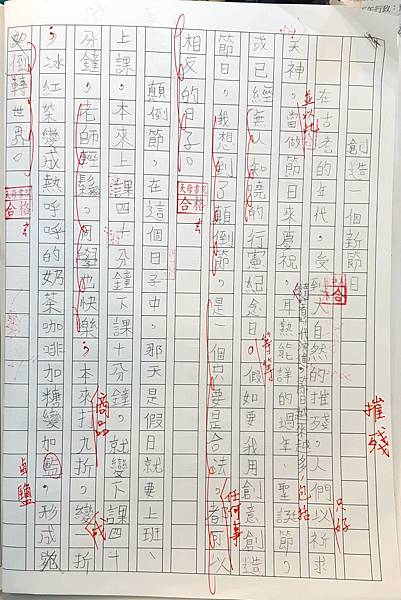 年行政:
創造一個新節日
在古老的年代,受到大自然的摧殘,人們以祈求
只好
摧殘
天神,當做節日來慶祝,耳熟能詳的過年、聖誕節,
並以此
或已經無人知曉的行憲紀念日。假如要我用創意創造
等等
節日,我想到了顛倒節。是一個只要是合法,都可以
任何事
相反的日子。
合格
顛倒節,在這個日子中,那天是假日就要上班、
上課。本來上課四十分鐘下課十分鐘,就變下課四十
分鐘,老師輕鬆,同學也快樂;本來打九折,變一折
商品
成
;冰紅茶變成熱呼呼的奶茶咖啡加糖變加鹽,形成
鹵
鹽
動倒轉世界。
合格